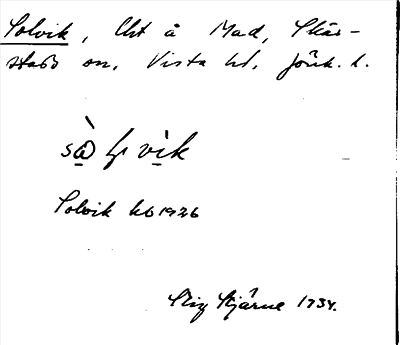 Solvik, lht å Mad, Skär-
stads sn, Vista hd, Jönk. l.
Solvik kb 1926
Stig Stjärne 1934.